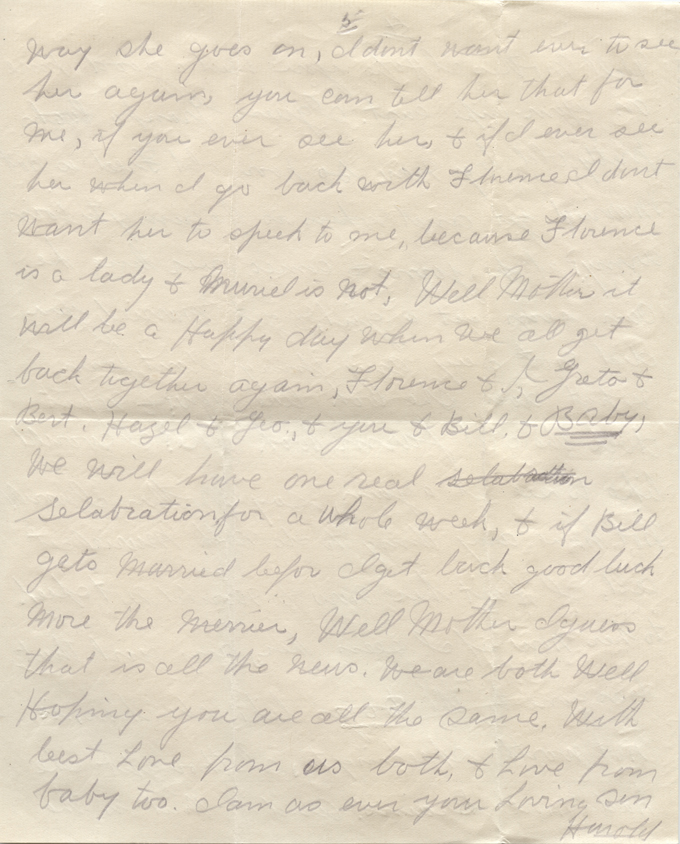 5
way she goes on, I dont want ever to see
her again, you can tell her that for
me, if you ever see her, & if I ever see
her when I go back with Florence I dont
want her to speek to me, because Florence
is a lady & Muriel is not, Well Mother it
will be a Happy day when we all get
back together again, Florence & I, Greta &
Bert. Hazel & Geo., & you & Bill, & Baby,
We will have one real selabration
selabration for a whole week, & if Bill
gets married befor I get back good luck
More the merrier, Well Mother I guess
that is all the news. We are both Well
Hoping you are all the same. With
best Love from us both, & Love from
baby too. I am as ever your Loving Son
Harold